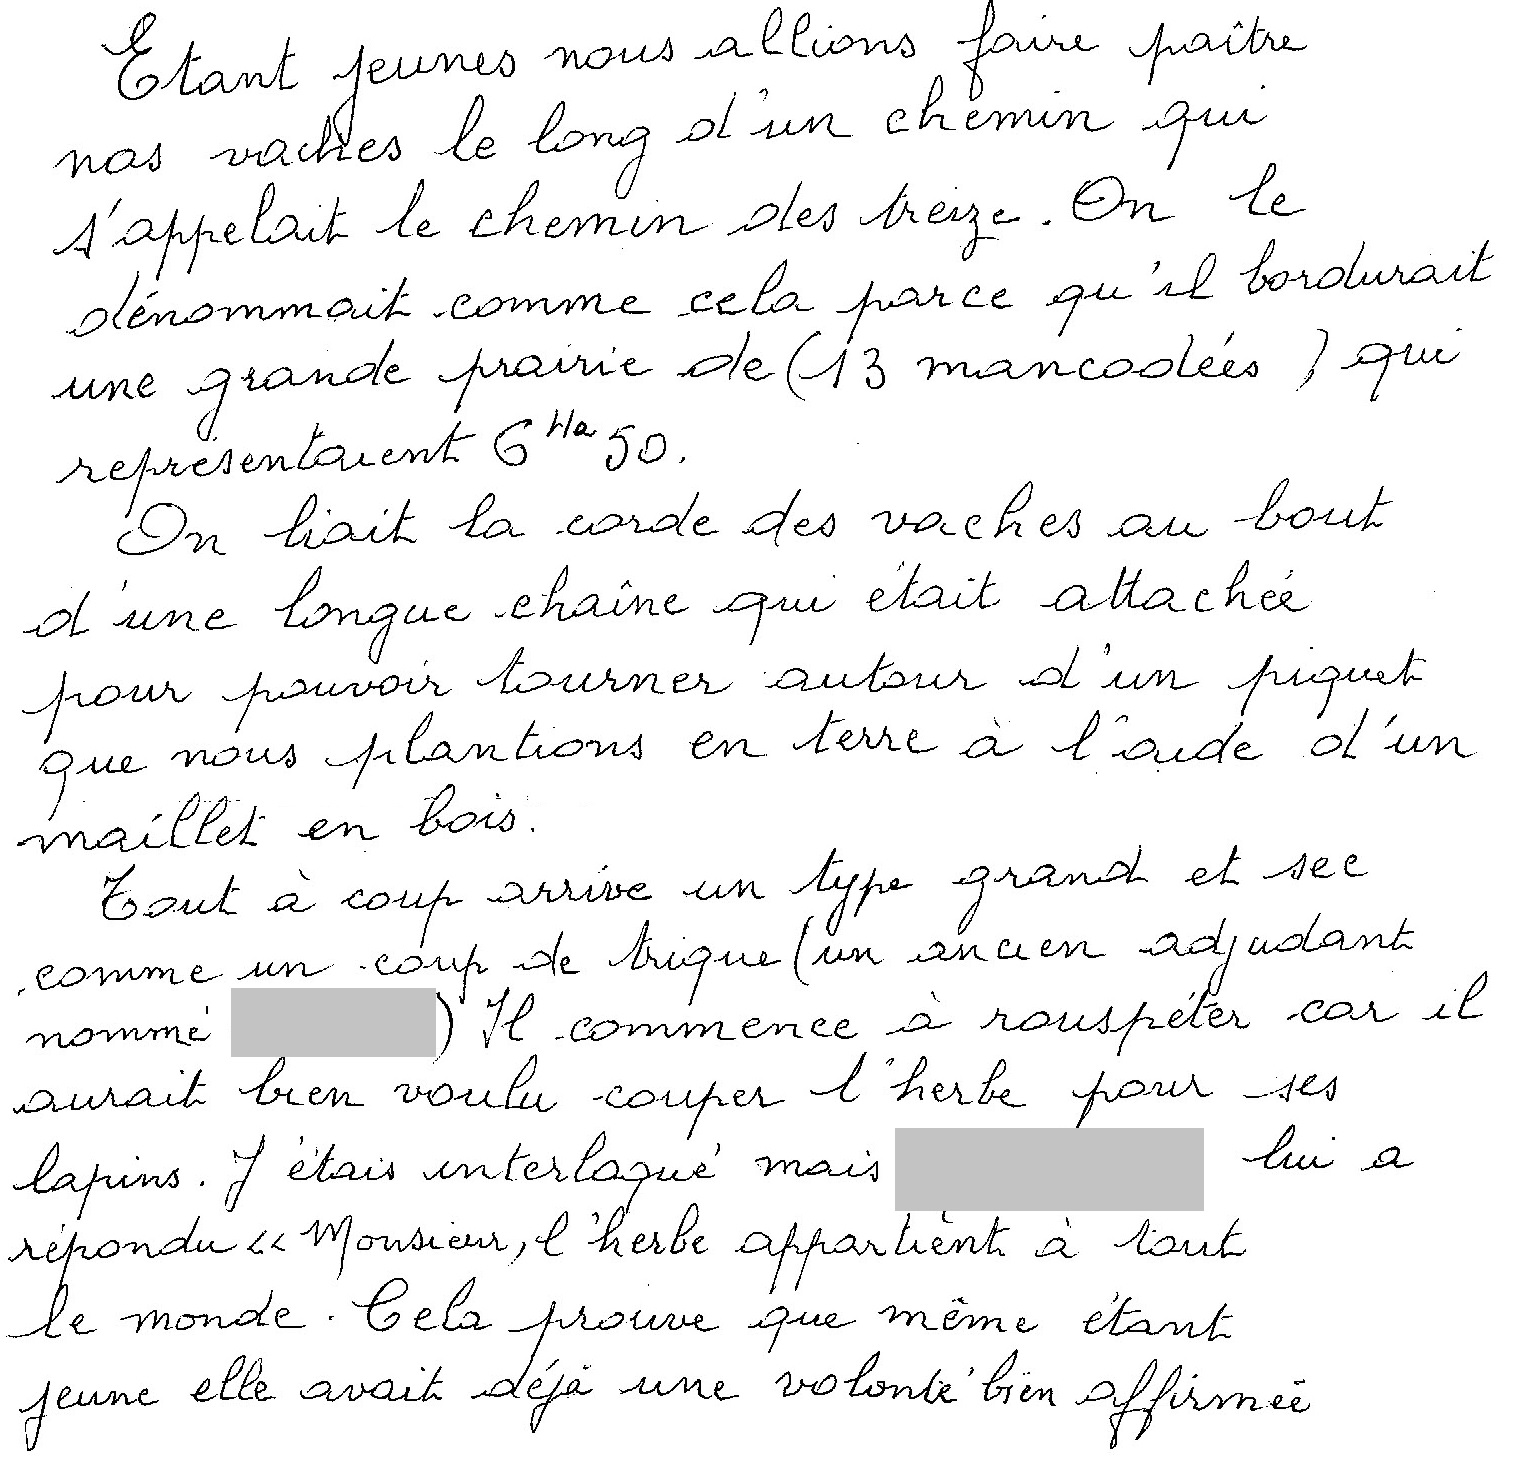 Etant jeunes nous allions faire paître
nos vaches le long d'un chemin qui
s'appelait le chemin des treize. On le
dénommait comme cela parce qu'il bordurait
une grande prairie de (13 mancodéés) qui
représentaient 6 Ha 50.
On liait la corde des vaches au bout
d'une longue chaîne qui était attachée
pour pouvoir tourner autour d'un piquet
que nous plantions en terre à l'aide d'un
maillet en bois.
Tout à coup arrive un type grand et sec
comme un coup de trique (un ancien adjudant
nommé ) Il commence à rouspéter car il
aurait bien voulu couper l'herbe pour ses
lapins. J'étais interloqué mais lui a
répondu « Monsieur, l'herbe appartient à tout
le monde. Cela prouve que même étant
jeune elle avait déjà une volonté bien affirmée